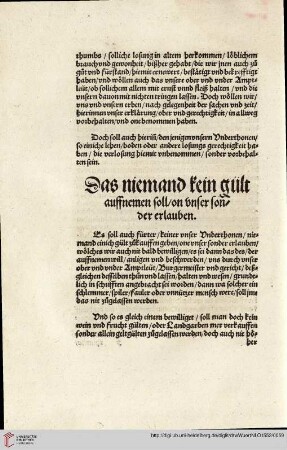 thumbs / solliche losung in altem herkommen / löblichem
brauch vnd gewonheit / bißher gehabt / die wir jnen auch zů
gůt vnd fürstand / hiemit ernewert / bestätigt vnd bekrefftiget
haben / vnd wöllen auch das vnsere ober vnd vnder Ampt-
leüt / ob sollichem allem mit ernst vnnd fleiß halten / vnd die
vnsern dauon mit nichten tringen lassen. Doch wöllen wir /
vns vnd vnsern erben / nach gelegenheit der sachen vnd zeit /
hierinnen vnser erklärung / oder enderung / in allweg hie-
mit vorbehalten / vnd onbenommen haben.
Doch soll auch hierinn / den jenigen vnsern Vnderthonen /
so einiche lehen / boden oder andere losungs gerechtigkeit ha-
ben / die verlosung hiemit vnbenommen / sonder vorbehal-
ten sein.
Das niemand kein gült
auffnemen soll / on vnser son-
der erlauben.
Es soll auch fürter / keiner vnser Vnderthonen / nie-
mand einich gült zůkauffen geben / one vnser sonder erlauben /
wölches wir auch nit bald bewilligen / es sei dann das des / der
auffnemen will / anligen vnd beschwerden / vns durch vnser
ober vnd vnder Amptleüt / Burgermeister vnd gericht / deß-
gleichen desselben thůn vnd lassen / halten vnd wesen / grundt-
lich in schrifften angebracht sei worden / dann wa solcher ein
schlemmer / spiler / fauler oder vnnützer mensch were / soll jme
das nit zůgelassen werden.
Vnd so es gleich einem bewilliget / soll man doch kein
wein vnd frucht gülten / oder Landgarben mer verkauffen
sonder allein geltgülten zůgelassen werden / doch auch nit hö-
her
http://digi.ub.uni-heidelberg.de/diglit/drwWuerttLO1552/0059